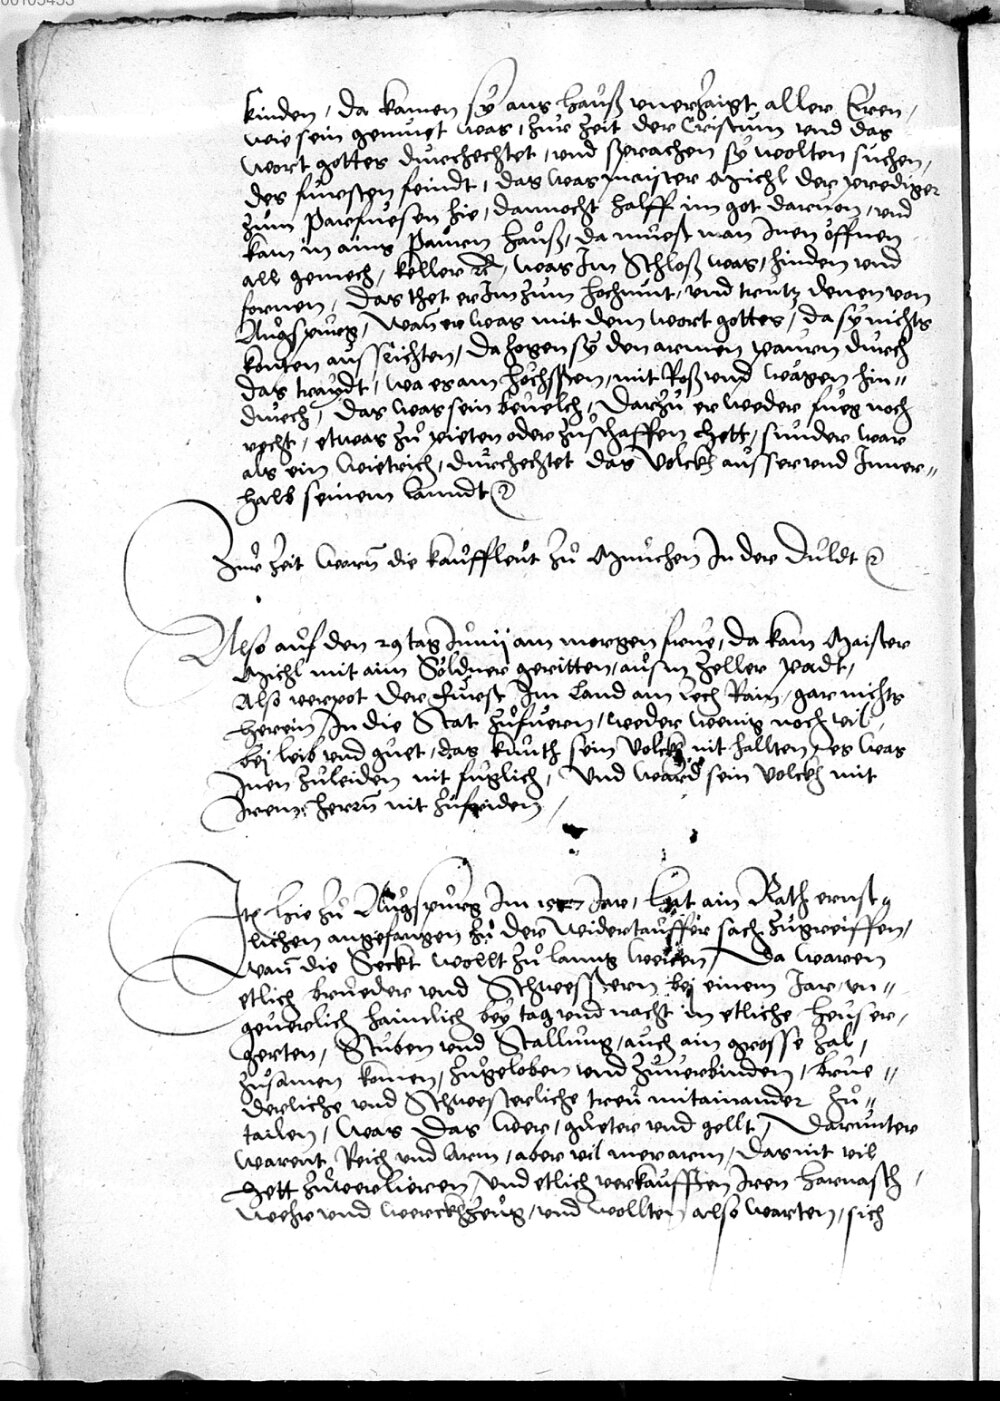 kinden, da kamen sÿ ans hauß vnerzaigt aller Eren,
wie sein gemüet was, zur zeit der Cristum vnd das
wort gottes durchechtet, vnd sprachen sÿ wolten süchen,
des fürsten feindt, das was maister Michl der prediger
zum Parfüesen hie, dannocht halff im got daruon, vnd
kam in ains Paurn hauß, da müest man Inen öffnen
all gemech, keller ꝛc, was Im Schloß was, hinden vnd
fornen, das thet er Im zum hochmut, vnd trutz denen von
Augspurg, wan er was mit dem wort gottes, da sÿ nichts
konten ausrichten, da zogen sÿ den armen paurn durch
das traydt, wa es am höchsten, mit Roß vnd wägen hin"
durch, das was sein beuelch, Darzu er weder fueg noch
recht, etwas zu pieten oder zuschaffen hett, sunder war
als ein wietrich, durchechtet das Volckh ausser vnd Inner"
halb seinem lanndt ꝛc
Zur Zeit warn die kauffleut zu München In der Duldt ꝛc
Also auf den 29 tag Junij am morgen frue, da kam Maister
Michl mit aim Söldner geritten, aus m Zeller padt,
Also verpot der Fürst Im land am lech Rain, gar nichts
herein In die Stat zufüern, weder wenig noch vil
bej leib vnd guet, das kunth sein Volckh nit hallten, es was
Inen zuleiden nit fuglich, Vnd ward sein volckh mit
Irem herrn nit zufriden,
Itē hie zu Augspurg Im 1527 Jar, hat ain Rath ernst
lichen angefangen zu der widertauffer sach zugreiffen,
wan die Seckt wollt zu lanng weren, Da waren
etlich brüeder vnd Schwesstern bej einem Jar, vn"
geuerlich haimlich beÿ tag vnd nacht in etliche heuser,
gerten, Stuben vnd Stallung, auch ain grosse zal,
zusamen komen, zugeloben vnd zuuerbinden, brue"
derliche vnd Schwesterliche treu mitainander zu"
tailen, was das wer, güeter vnd gellt, Darunter
warent Reich vnd Arm, aber vil mer arm, das nit vil
hett zuverlieren, vnd etlich verkaufften Iren harnasch,
wehr vnd werckhzeug, vnd wollten also warten, sich